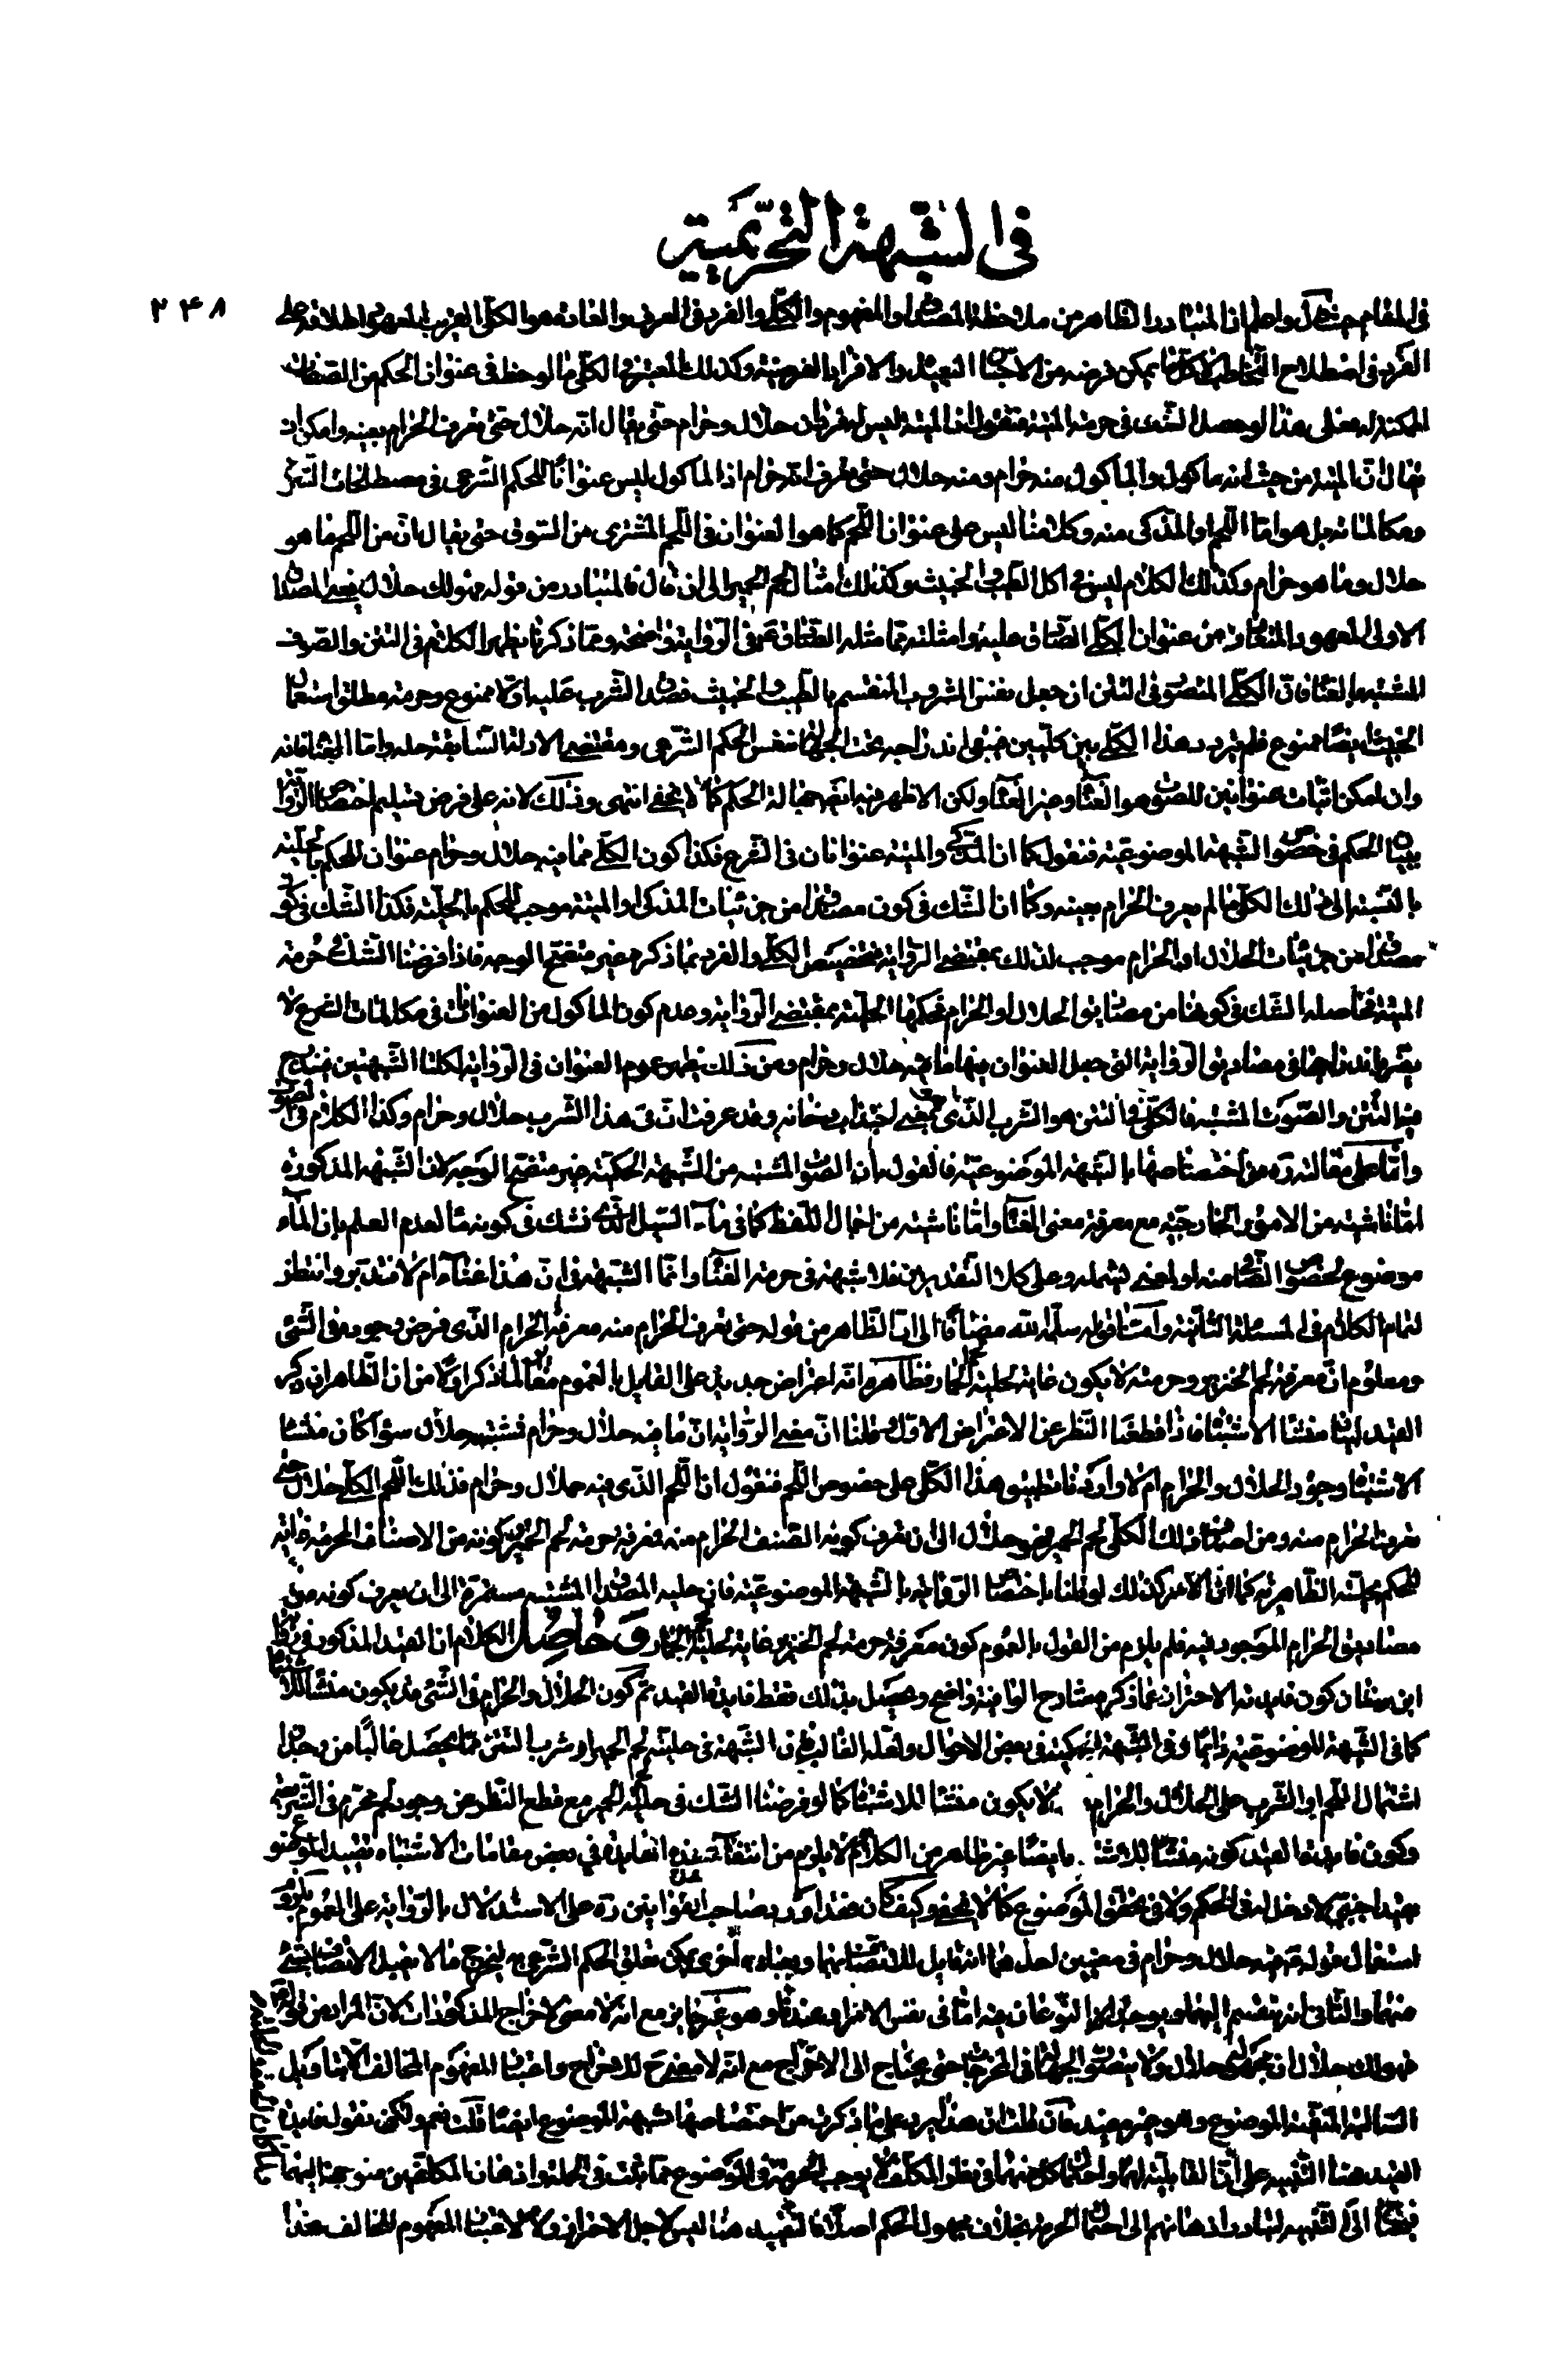 في الشبهة التحريمية
۲۴۸
في المقام جهل واعلم ان المتبادر الظاهر من ملاحظة المصداق والمفهوم والكلي والفرد في العرف والعادة هو الكلي القريب المعهود اطلاقه على
الفرد في اصطلاح التخاطب لا كل ما يمكن فرضه من الاجناس البعيدة والافراد الفرضية وكذلك المعتبر في الكلي ما لوحظ في عنوان الحكم من الصفات
الممكنة له فعلى هذا لو حصل الشك في حرمة الميتة فنقول ان الميتة ليس له فردان حلال وحرام حتى يقال انه حلال حتى يعرف الحرام بعينه وامكن ان
يقال ان الميتة من حيث انه ماكول والماكول منه حرام ومنه حلال حتى يعرف انه حرام اذ الماكول ليس عنوانا للحكم الشرعي في مصطلحات الشرع
ومكالماته بل هو اما اللحم او المذكى منه وكلامنا ليس على عنوان اللحم كما هو العنوان في اللحم المشترى من السوق حتى يقال ان من اللحم ما هو
حلال وما هو حرام وكذلك الكلام ليس في اكل الطيب والخبيث وكذلك مثال لحم الحمير الى ان قال فالمتبادر من قوله فهو لك حلال يعني المصداق
الاولى المعهود المتعارف من عنوان الكلي الصادق عليه وامثلته مما مثله الصادق ع في الرواية واضحة ومما ذكرنا يظهر الكلام في التتن والصوت
المشتبه بالغناء فان الكلي المتصور في التتن ان جعل نفس المشروب المنقسم بالطيب والخبيث فصدق الشرب عليه اولا ممنوع وحرمة مطلق استعمال
الخبيث ايضا ممنوع فلم يتردد هذا الكلي بين كليين فبقي اندراجه تحت الجهالة بنفس الحكم الشرعي ومقتضى الادلة السابقة حله واما الغناء فانه
وان امكن اثبات عنوانين للصوت هو الغناء وغير الغناء ولكن الاظهر فيه ايضا جهالة الحكم كما لا يخفى انتهى وذلك لانه على فرض تسليم اختصاص الرواية
ببيان الحكم في خصوص الشبهة الموضوعية فنقول كما ان المذكى والميتة عنوانان في الشرع فكذا كون الكلي مما فيه حلال وحرام عنوان للحكم بالحلية
بالنسبة الى ذلك الكلي ما لم يعرف الحرام بعينه وكما ان الشك في كون مصداق من جزئيات المذكى او الميتة موجب للحكم بالحلية فكذا الشك في كون
مصداق من جزئيات الحلال او الحرام موجب لذلك بمقتضى الرواية فتخصيص الكلي والفرد بما ذكره غير متضح الوجه فاذا فرضنا الشك في حرمة
الميتة فحاصله الشك في كونها من مصاديق الحلال او الحرام فحكمها الحلية بمقتضى الرواية وعدم كون الماكول من العنوانات في مكالمات الشرع لا
يضر باندراجها في مصاديق الرواية التي جعل العنوان فيها ما فيه حلال وحرام ومن ذلك يظهر عموم العنوان في الرواية لكلتا الشبهتين فيندرج
فيه التتن والصوت المشتبه فالكلي في التتن هو الشرب الذي بمعنى اجتذاب دخانه وقد عرفت ان في هذا الشرب حلال وحرام وكذا الكلام في الصوت
واما على مقالته ره من اختصاصها بالشبهة الموضوعية فالقول بان الصوت المشتبه من الشبهة الحكمية غير متضح الوجه لان الشبهة المذكورة
اما ناشئة من الامور الخارجية مع معرفة معنى الغناء واما ناشئة من اجمال اللفظ كما في ماء السيل الذي نشك في كونه ماء لعدم العلم بان الماء
موضوع لخصوص الصافي منه او لمعنى يشمله وعلى كلا التقديرين فلا شبهة في حرمة الغناء وانما الشبهة في ان هذا غناء ام لا فتدبر وانتظر
لتمام الكلام في المسئلة الثانية واما قوله سلمه الله مضافا الى ان الظاهر من قوله حتى تعرف الحرام منه معرفة الحرام الذي فرض وجوده في الشئ
ومعلوم ان معرفة لحم الخنزير وحرمته لا يكون غاية لحلية لحم الحمار فظاهره انه اعتراض جديد على القايل بالعموم مغاير لما ذكر اولا من ان الظاهر ان ذكر
القيد لبيان منشأ الاشتباه فاذا قطعنا النظر عن الاعتراض الاول وقلنا ان معنى الرواية ان ما فيه حلال وحرام فمشتبهه حلال سواء كان منشأ
الاشتباه وجود الحلال والحرام ام لا واردنا تطبيق هذا الكلي على خصوص اللحم فنقول ان اللحم الذي فيه حلال وحرام فذلك اللحم الكلي حلال حتى
تعرف الحرام منه ومن اصناف ذلك الكلي لحم الحمير فهو حلال الى ان تعرف كونه الصنف الحرام منه فمعرفة حرمة لحم الحمير وكونه من الاصناف المحرمة غاية
للحكم بحليته الظاهرية كما ان الامر كذلك لو قلنا باختصاص الرواية بالشبهة الموضوعية فان حلية المصداق المشتبه مستمرة الى ان يعرف كونه من
مصاديق الحرام الموجود فيه فلم يلزم من القول بالعموم كون معرفة حرمة لحم الخنزير غاية لحلية لحم الحمار وحاصل الكلام ان القيد المذكور في رواية
ابن سنان كون فايدته الاحتراز عما ذكره شارح الوافية واضح ويحصل بذلك فقط فايدة القيد ثم كون الحلال والحرام في الشئ قد يكون منشأ للاشتباه
كما في الشبهة الموضوعية دائما وفي الشبهة الحكمية في بعض الاحوال ولعله الغالب فان الشبهة في حلية لحم الحمير او شرب التتن مما يحصل غالبا من وجه
اشتمال اللحم او الشرب على الحلال والحرام لا يكون منشأ للاشتباه كما لو فرضنا الشك في حلية لحم الحمير مع قطع النظر عن وجود لحم محرم في الشريعة
وكون فايدة القيد كونه منشأ للاشتباه ايضا غير ظاهر من الكلام لا يلزم من انتفاء هذه الفايدة في بعض مقامات الاشتباه تقييد الموضوع
بقيد اجنبي لا دخل له في الحكم ولا في تحقق الموضوع كما لا يخفى وكيف كان فقد اورد صاحب القوانين ره على الاستدلال بالرواية على العموم بلزوم
استعمال قوله ع فيه حلال وحرام في معنيين احدهما انه قابل للاتصاف بهما وبعبارة اخرى يمكن تعلق الحكم الشرعي به ليخرج ما لا يقبل الاتصاف بشئ
منهما والثاني انه ينقسم اليهما ويوجد النوعان فيه اما في نفس الامر او عندنا وهو غير جايز مع انه لا معنى لاخراج المذكورات لان المراد من قوله
فهو لك حلال ان مجهول الحكم حلال ولا يتصور الجهالة في المخرجات حتى يحتاج الى الاخراج مع انه لا معنى ح للاخراج واعتبار المفهوم المخالف الا بتاويل
السالبة المنتفية الموضوع وهو غير مفيد فان قلت ان هذا يرد على ما ذكرت من اختصاصها بشبهة الموضوع ايضا قلت نعم ولكن نقول فايدة
القيد هنا التنبيه على ان القابلية لهما واحتمال كل منهما في نظر المكلف لا يوجب الحرمة والموضوع مما ثبت في الجملة واذهان المكلفين متوجهة اليهما
فيحتاج الى التنبيه لتبادر اذهانهم الى احتمال الحرمة بخلاف مجهول الحكم اصلا فالتقييد هنا ليس لاجل الاحتراز ولا لاعتبار المفهوم المخالف هذا